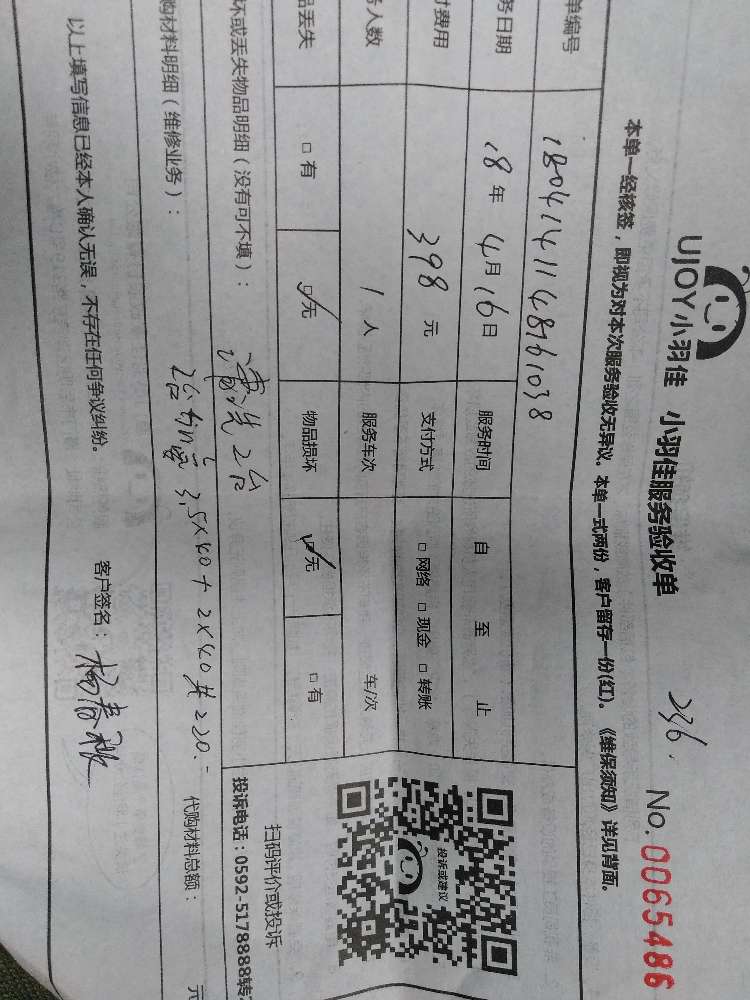 UJOY小羽佳 小羽佳服务验收单 236. No. 0065486
本单一经核签，即视为对本次服务验收无异议。本单一式两份，客户留存一份(红)。《维保须知》详见背面。
单编号 1804141148161038
务日期 18年4月16日 服务时间 自 至 止
付费用 398 元 支付方式 □ 网络 □ 现金 □ 转账
务人数 1 人 服务车次 车/次
品丢失 □ 有 ☑无 物品损坏 ☑无 □ 有
坏或丢失物品明细（没有可不填）： 清洗2台
购材料明细（维修业务）： 2台加 3.5×40+2×40共220.- 代购材料总额： 元
以上填写信息已经本人确认无误，不存在任何争议纠纷。 客户签名：杨春
投诉或建议
扫码评价或投诉
投诉电话：0592-5178888转